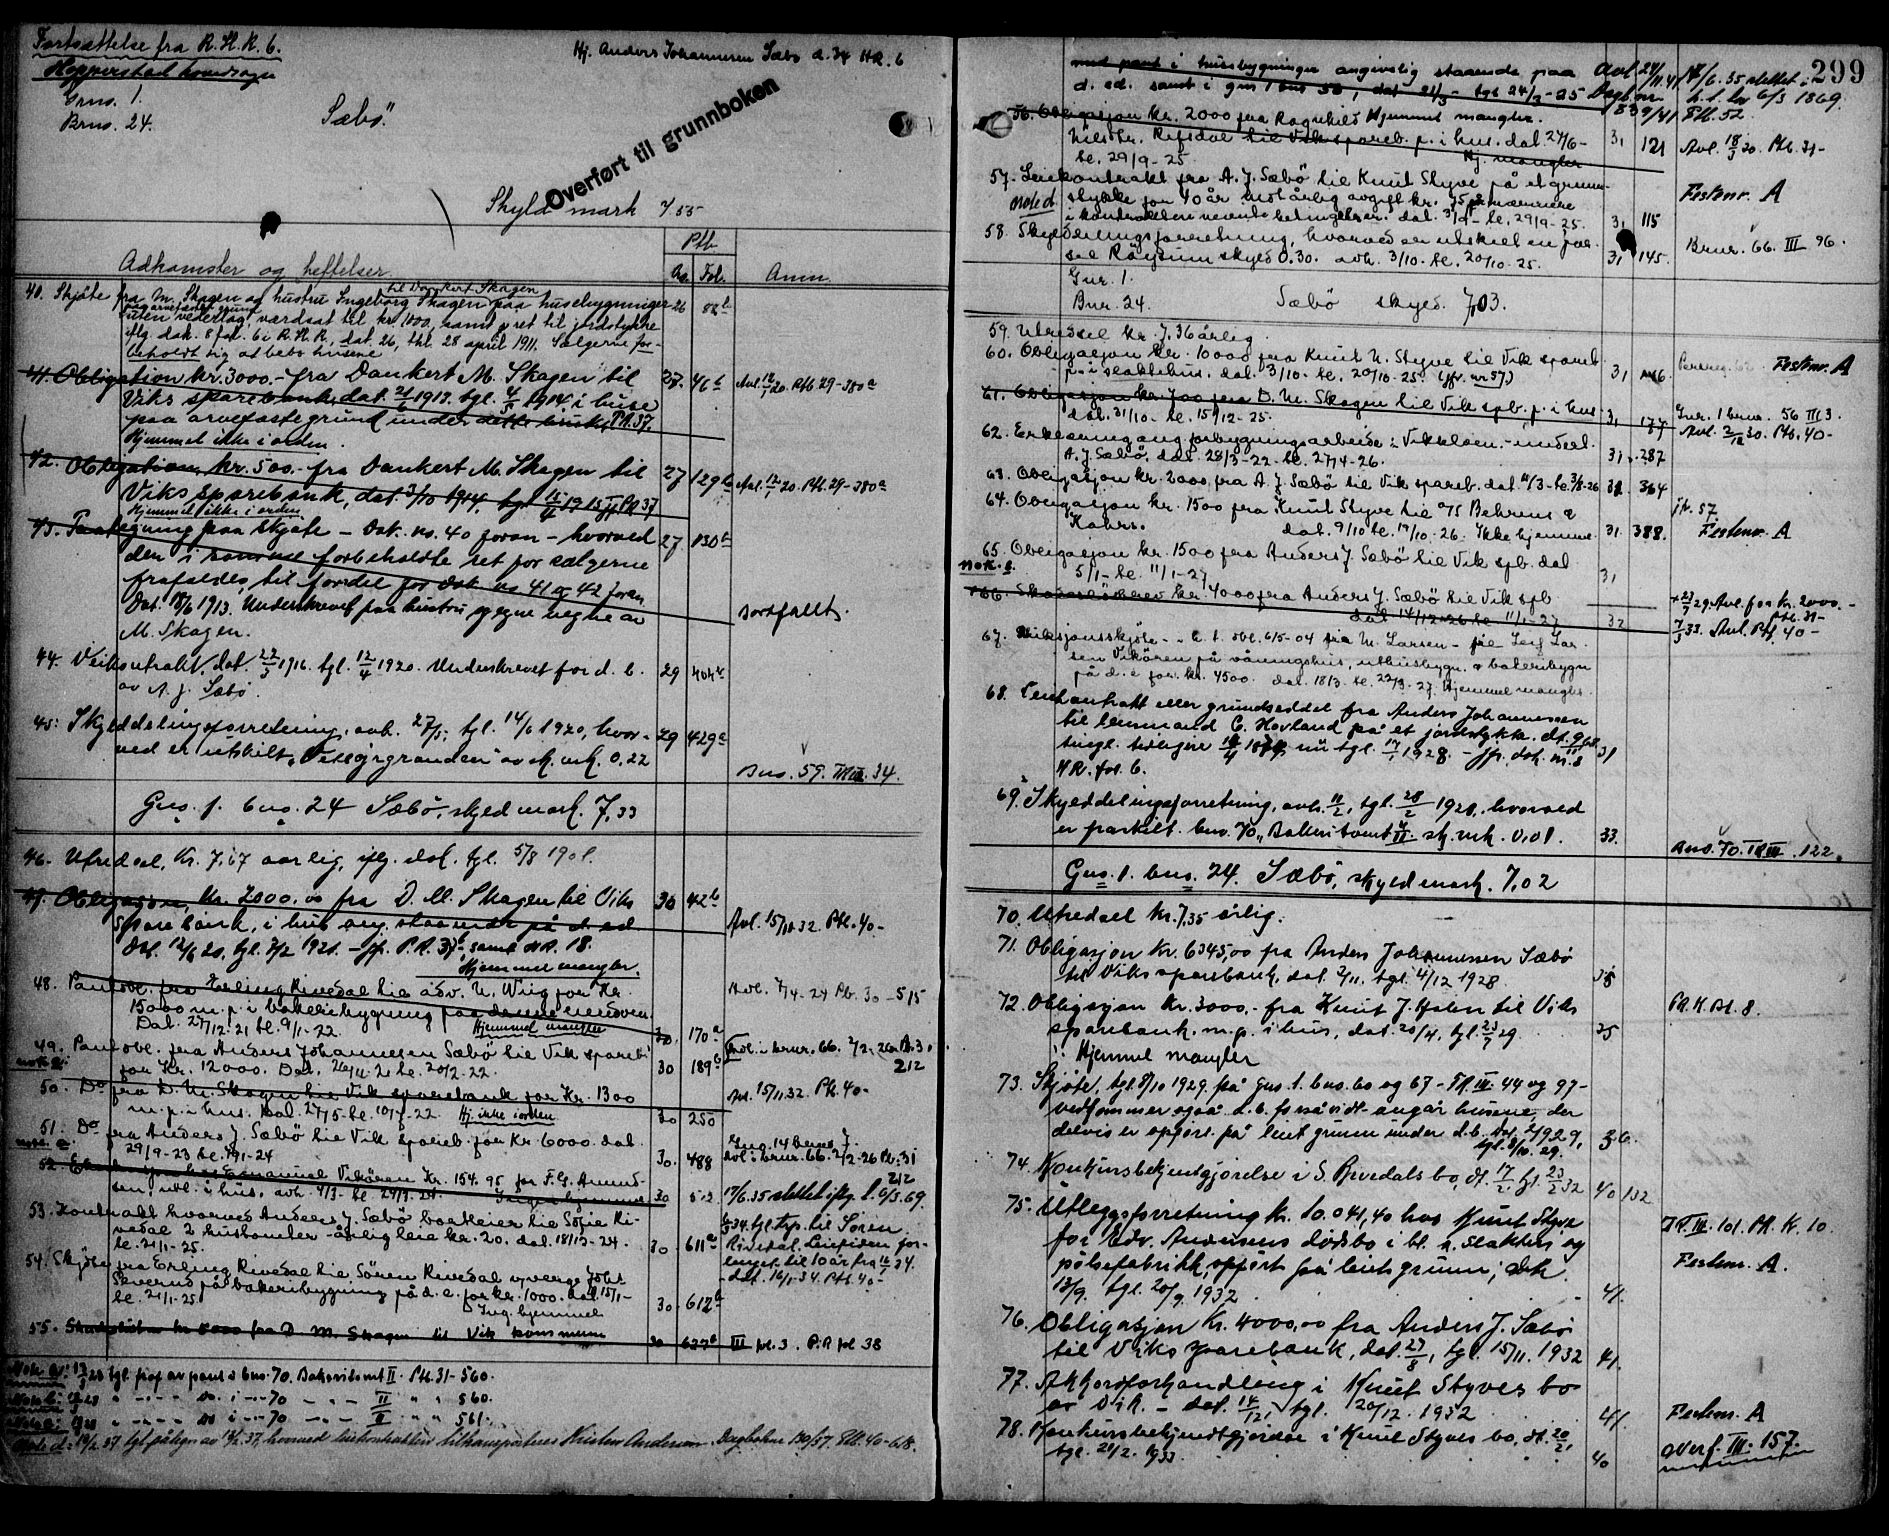 Fortsættelse fra R.H.R. 6.
Hopperstad hovedsogn
Hj. Anders Johannesen Sæbø d. 34 HR. 6
Grno. 1.
Brno. 24.
Sæbö.
Overført til grunnboken
Skyld mark 7/55
Ptb
Adkomster og heftelser.
No. Fol. Anm.
40. Skjøte fra M. Skagen og hustru Ingeborg Skagen til Dankert Skagen paa husebygninger 26
uten vederlag, værdsat til kr 1000, samt ret til jordstykke
iflg. dok. 8 fol. 6 i R.H.R, dat. 26, thl. 28 april 1911. Sælgerne for-
beholdt sig at bebo husene
41. Obligation kr. 3000.- fra Dankert M. Skagen til 27. 46 Avl. 20. Ptb 29-380a
Viks sparebank, dat. 1913. tgl. 1914, i huse
paa arvefæstegrund under dette bruk, PR. 37.
Hjemmel ikke i orden.
42. Obligation kr. 500.- fra Dankert M. Skagen til 27 129 Avl. 20. Ptb. 29-380a
Viks sparebank, dat. 3/10 1914, tgl. 1915 PR 37
Hjemmel ikke i orden
43. Paategning paa skjøte - Dok. no. 40 foran - hvorved 27 130b
den i samme forbeholdte ret for sælgerne
frafaldes til fordel for dok. no 41 og 42 foran
Dat. 18/6 1913. Underskrevet paa hustru og egne vegne av
M. Skagen.
bortfallt.
44. Veikontrakt, dat. 22/3 1916. tgl. 12/4 1920. Underskrevet for d. b. 29 404
av A. J. Sæbø.
45. Skylddelingsforretning, avh. 27/5, tgl. 14/6 1920, hvor- 29 429a
ved er utskilt av sk. mk. 0,22
Bno. 59. III. 34.
Gno. 1. bno. 24 Sæbö, skyld mark. 7,33
46. Utredsel, Kr. 7,67 aarlig, iflg. dok. tgl. 5/8 1901.
47. Obligasjon, kr. 2000,00 fra D. M. Skagen til Viks 30 42b
sparebank, i hus ang. staaende på d. ed.
Dat. 12/6 20, tgl. 7/2 1921. - jfr. P.R. 37, samt HR. 18.
Hjemmel mangler.
Avl. 15/11 32 Ptb. 40-
48. Pantobl. fra Erling Rivedal til adv. N. Wiig for Kr.
15000 m. p. i bakeribygning paa denne eiendom.
Dat. 27/12-21 tl. 9/1-22. Hjemmel mangler 30. 170a
Avl. 7/4-24 Pb. 30-515
49. Pantobl. fra Anders Johannesen Sæbö til Vik spareb.
for Kr. 12000. Dat. tl. 20/2-22. 30 189b
Avl. i brnr. 66. 2/2-26 Pb. 31 212
50. Do fra D. M. Skagen til Vik sparebank for Kr. 1300
m. p. i hus. Dat. 27/5- tl. 22 Hj. ikke i orden 30 250
Avl. 15/11 32 Ptb. 40-
51. Do fra Anders J. Sæbö til Vik spareb. for Kr. 6000. dat.
29/9-23 tl. 1-24 30. 488
Avl. i brnr. 66. 2/2-26 Pb. 31 212
52. Emanuel Vikören Kr. 154.95 for F. G. Amund-
sen, utl. i hus, avh. 4/3- tl. 24/3-24. Ingen hjemmel 30 512
17/6.35 slettet iflg. l. 6/3.69.
53. Kontrakt hvorved Anders J. Sæbö bortleier til Sofie Ri-
vedal 2 hustomter - årlig leie kr. 20. dat. 18/12-24.
tl. 21/1-25. 30 611a
tgl. trp. til Sören
Rivedal. Leietiden for-
lenget til 10 år fra 24.
dat. 16/1-34. Ptb. 40-
54. Skjöte fra Erling Rivedal til Sören Rivedal
på bakeribygning på d. e. for kr. 1000. dat. 15/1-
tl. 21/1-25. Ing. hjemmel 30. 612a
55. Skadeslösbr kr 5000 fra D M. Skagen til Vik kommune 30 627a III fol. 3. P.R fol 38
Note a: 28 tgl. fraf. av pant i bno. 70. Bakeritomt II. Ptb. 31-560.
Note b: 28 " - - - do. i - 70 - - II " " 560.
Note c: 28 " - - - do i - 70 - - II " " 561.
Note d: 19/2 37 tgl. påtegn. av 18/2 37, hvorved leiekontrakten tiltransporteres Kristen Andersen. Dagboknr. 130/37. Ptb. 40-618.
299
med pant i husebygninger angivelig staaende paa
d. ed. samt i gnr 1 bnr 56, dat 21/3 - tgl 24/3-25
17/6.35 slettet
h. t. lov 6/3 1869.
56. Obligasjon kr. 2000 fra Ragnhild Hjemmel mangler.
Nilsdtr. Refsdal til Vik spareb. p. i hus. dat. 27/6-
tl. 29/9-25. Hj. mangler 31 121
Avl. 18/3 30. Ptb. 31-
57. Leiekontrakt fra A. J. Sæbö til Knut Styve på et grunn-
stykke for 40 år mot årlig avgift kr. 45 på nærmere
i kontrakten nevnte betingelser. dat. 3/9- tl. 29/9-25. 31 115
note d
Festenr. A
58. Skylddelingsforretning, hvorved er utskilt en par-
sel Röysum skyld 0.30. avh. 3/10- tl. 20/10-25. 31 145.
Brnr. 66. III 96.
Gnr. 1.
Bnr. 24. Sæbö skyld. 7,03.
59. Utredsel kr. 7.36 årlig.
60. Obligasjon kr. 10000 fra Knut N. Styve til Vik spareb.
p. i slaktehus, dat. 3/10- tl. 20/10-25. (jfr. nr 57.) 31 146.
Festenr. A
61. Obligasjon kr. 700 fra D. M. Skagen til Vik spb. p. i hus
dat. 31/10- tl. 15/12-25. 31 177
Gnr. 1 brnr. 56 III 3.
Avl. 2/12 30. Ptb. 40-
62. Erklæring ang. forbygningsarbeide i Vikelven, - undert.
A. J. Sæbö, dat. 28/3-22- tl. 27/4-26. 31. 287
63. Obligasjon kr. 2000 fra A. J Sæbö til Vik spareb. dat. 11/3- tl. 3/8-26 31. 364
64. Obligasjon kr. 1500 fra Knut Styve til a/s Behrens &
Kahrs. dat. 9/10 tl. 19/10-26. Ikke hjemmel 31. 388.
jfr. 57.
Festenr. A
65. Obligasjon kr. 1500 fra Anders J. Sæbö til Vik spb. dat
5/1- tl. 11/1-27 31
66. Skadeslösbrev kr. 4000 fra Anders J. Sæbö til Vik spb
dat 14/12-26 tl 11/1-27 32
29. Avl. for kr. 2000.-
Ptb. 31-
33. Avl. Ptb. 40-
67. Auksjonsskjöte - h. t. obl. 6/5-04 fra M. Larsen - til Leif Lar-
sen Vikören på våningshus, uthusbygn. & bakeribygn
på d. e. for kr. 4500. dat. 18/3. tl. 22/3-27. Hjemmel mangler
68. Festekontrakt eller grundseddel fra Anders Johannessen
til lensmand C. Hovland på et jordstykke, dt.
tingl. tidligere nu tgl. 1928. - jfr. dok. nr. 8
HR. fol. 6.
31
69. Skylddelingsforretning, avh. 11/2, tgl. 28/2 1928, hvorved
er fraskilt bno. 70, Bakeritomt II. sk. mk. 0,01. 33.
Bno. 70. III. 122.
Gno. 1. bno. 24. Sæbö, skyld mark. 7,02
70. Utredsel kr. 7,35 årlig.
71. Obligasjon kr. 6345,00 fra Anders Johannessen Sæbö
til Viks sparebank, dat. 2/11. tgl. 4/12 1928.
72. Obligasjon kr. 3000.- fra Knut J. Holen til Viks
sparebank. m. p. i hus, dat. 20/4, tgl. 29. 35
Hjemmel mangler
PR. K. Bl. 8.
73. Skjöte, tgl. 8/10 1929. på gno. 1. bno. 60 og 67 - PR. III. 44 og 97 -
vedkommer også d. b. forsåvidt angår husene, der
delvis er opført på leiet grunn under d. b. dat. 1929,
tgl. 8/10. 29. 36.
74. Konkursbekjentgjörelse i S. Rivedals bo, dt. 17/2. tgl. 23/2 32 40/132
75. Utleggsforretning kr. 10.041,40 hos Knut Styve
for Edv. Andersens dödsbo i bl. a. slakteri og
pölsefabrikk, opfört på leiet grunn, avh.
13/9. tgl. 20/9. 1932. 41.
III. 101. PR. K. 10.
Festenr. A.
76. Obligasjon kr. 4000,00 fra Anders J. Sæbö
til Viks sparebank, dat. 27/8, tgl. 15/11. 1932 41.
77. Akkordforhandling i Knut Styves bo
av Vik. - dat. 14/12, tgl. 20/12. 1932 41.
Festenr. A
78. Konkursbekjendtgjörelse i Knut Styves bo, dt. 20/2,
tgl. 21/2. 1933. 40
Overf. III. 157.